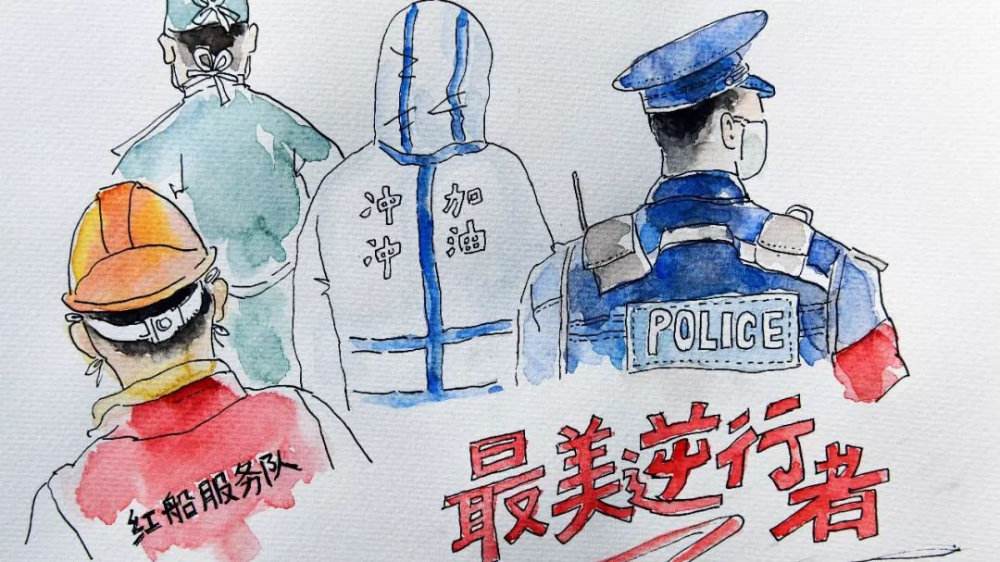 冲冲
加油
POLICE
红船服务队
最美逆行者